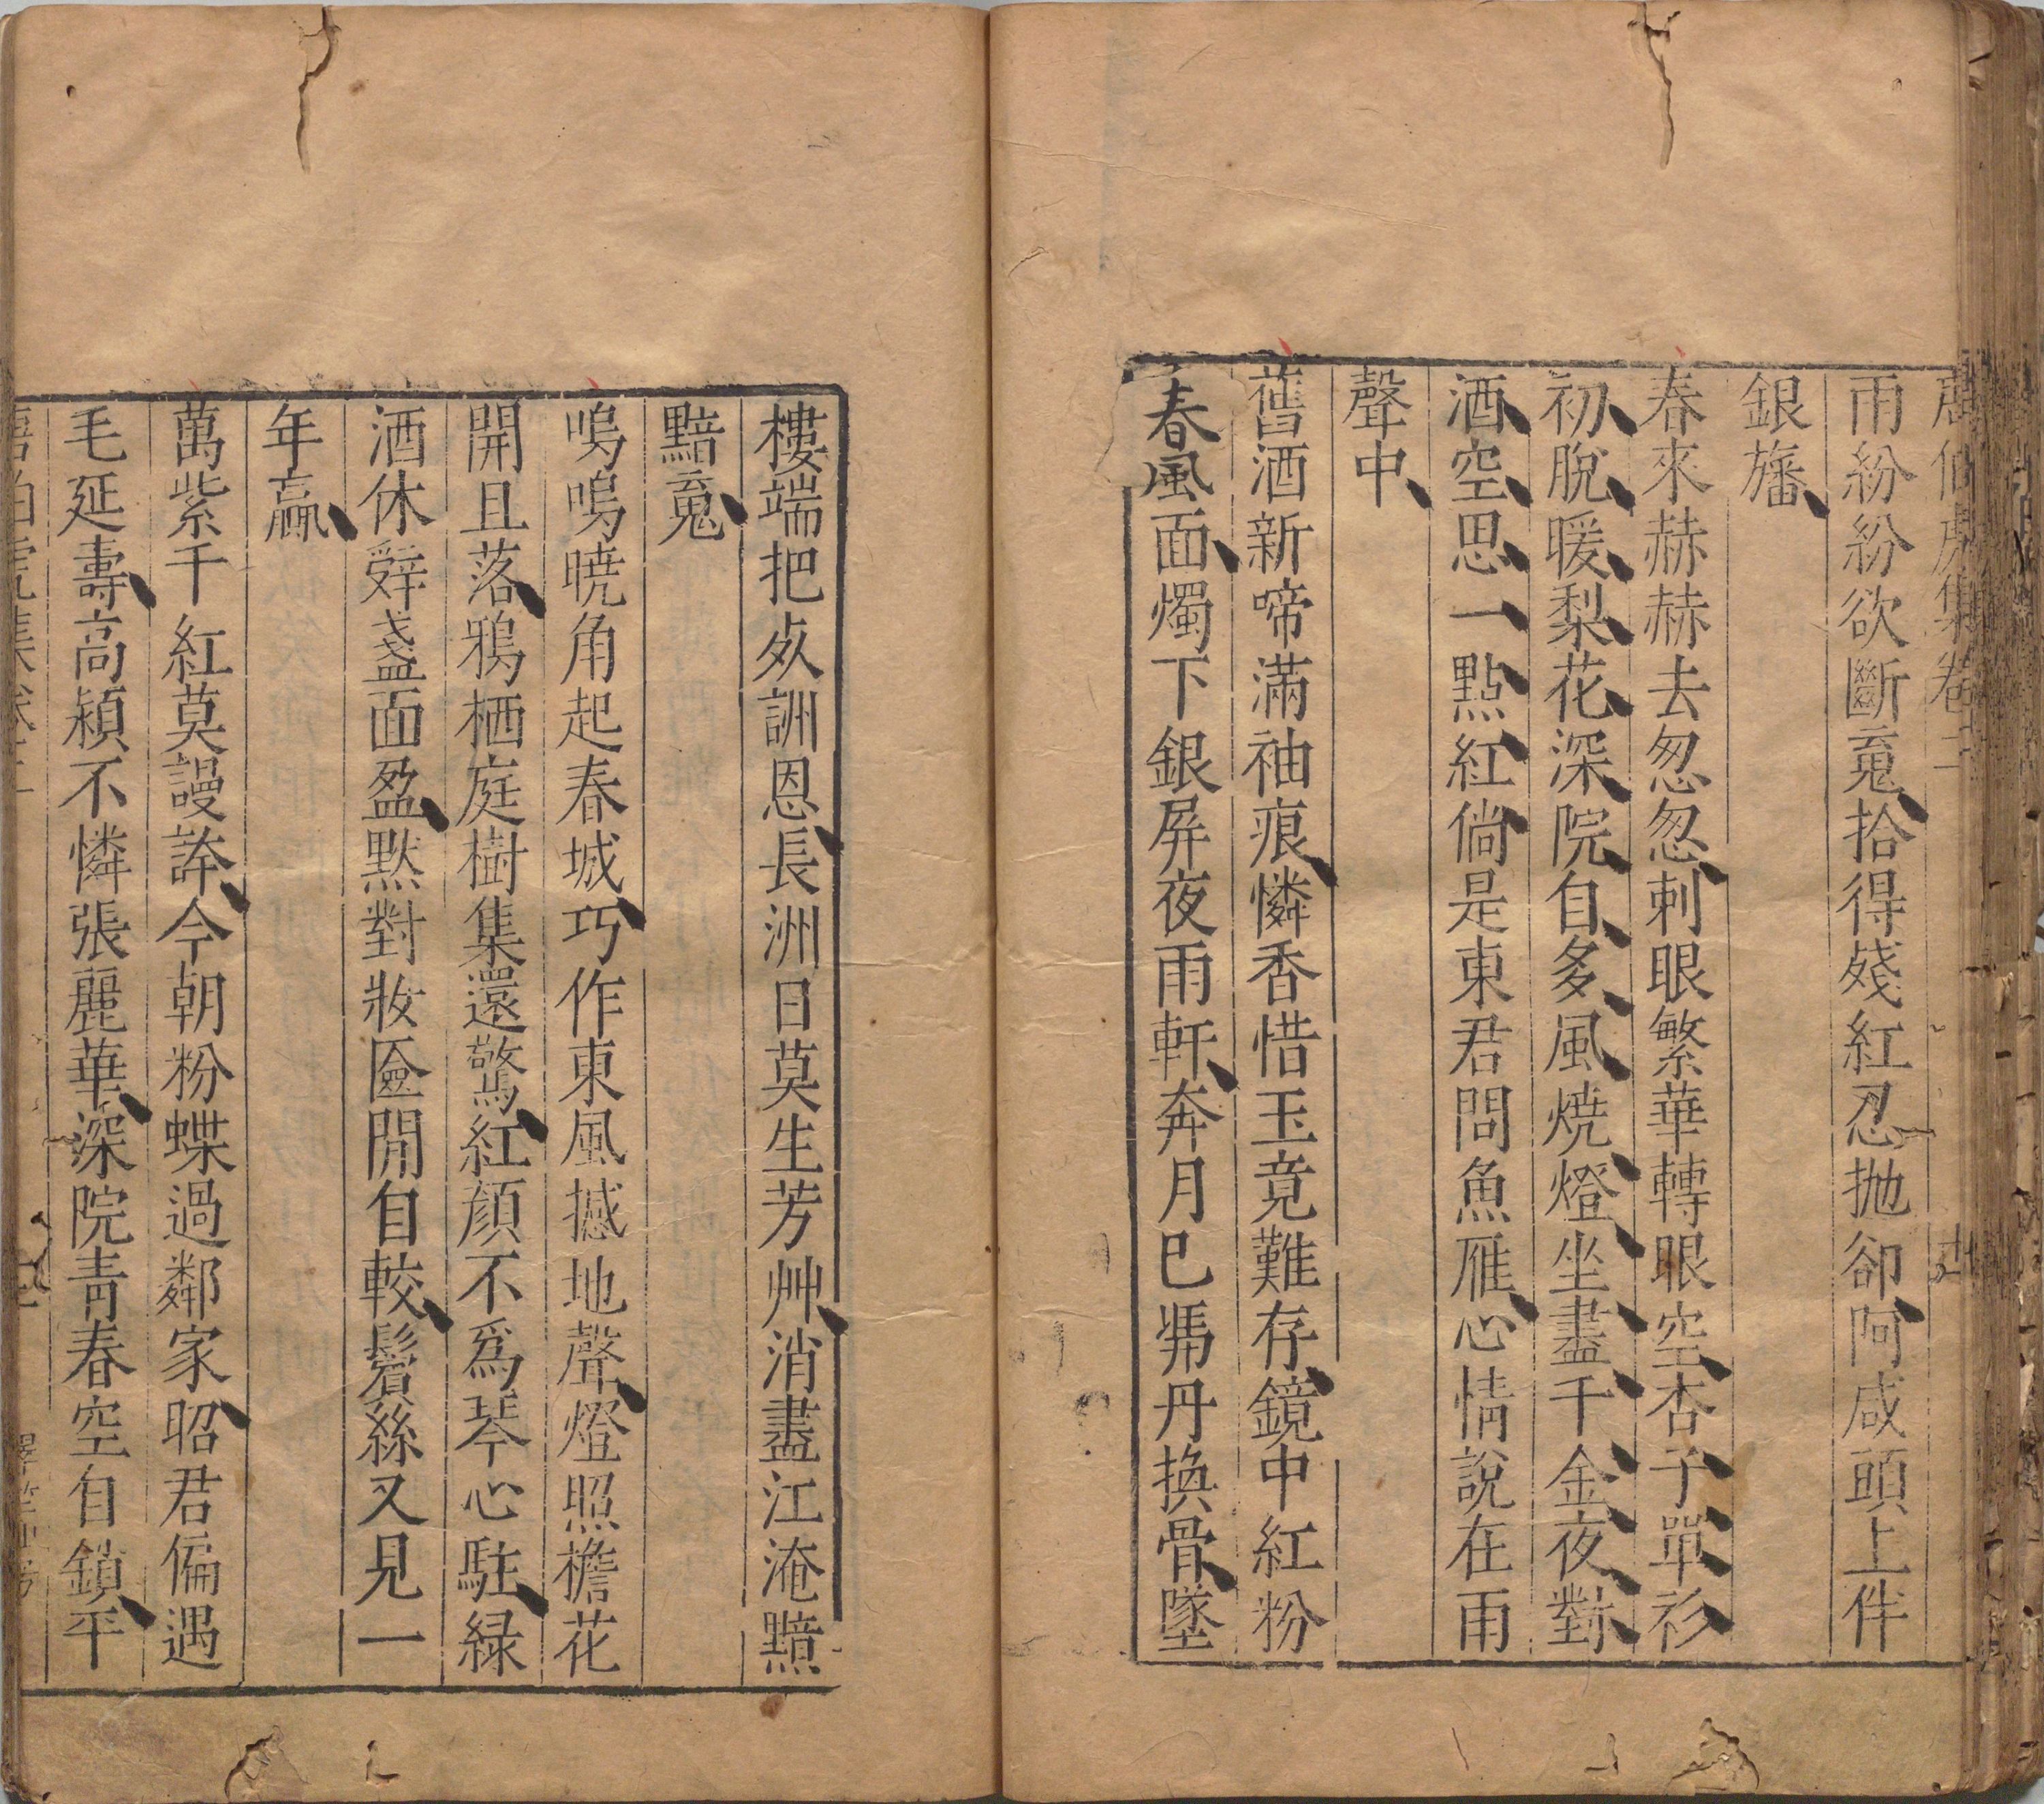 唐伯虎集卷二
雨紛紛欲斷䰟拾得殘紅忍拋卻阿咸頭上伴
銀旛
春來赫赫去忽忽刺眼繁華轉眼空杏子單衫
初脫暖梨花深院自多風燒燈坐盡千金夜對
酒空思一點紅倘是東君問魚雁心情說在雨
聲中
舊酒新啼滿袖痕憐香惜玉竟難存鏡中紅粉
春風面燭下銀屏夜雨軒奔月已凴丹換骨墜
樓端把死詶恩長洲日莫生芳艸消盡江淹黯
黯䰟
嗚嗚曉角起春城巧作東風撼地聲燈照檐花
開且落鴉栖庭樹集還驚紅顏不爲琴心駐緑
酒休辤盞面盈默對妝匳閒自較鬢絲又見一
年贏
萬紫千紅莫謾誇今朝粉蝶過鄰家昭君偏遇
毛延壽高熲不憐張麗華深院青春空自鎖平
唐伯虎集卷二